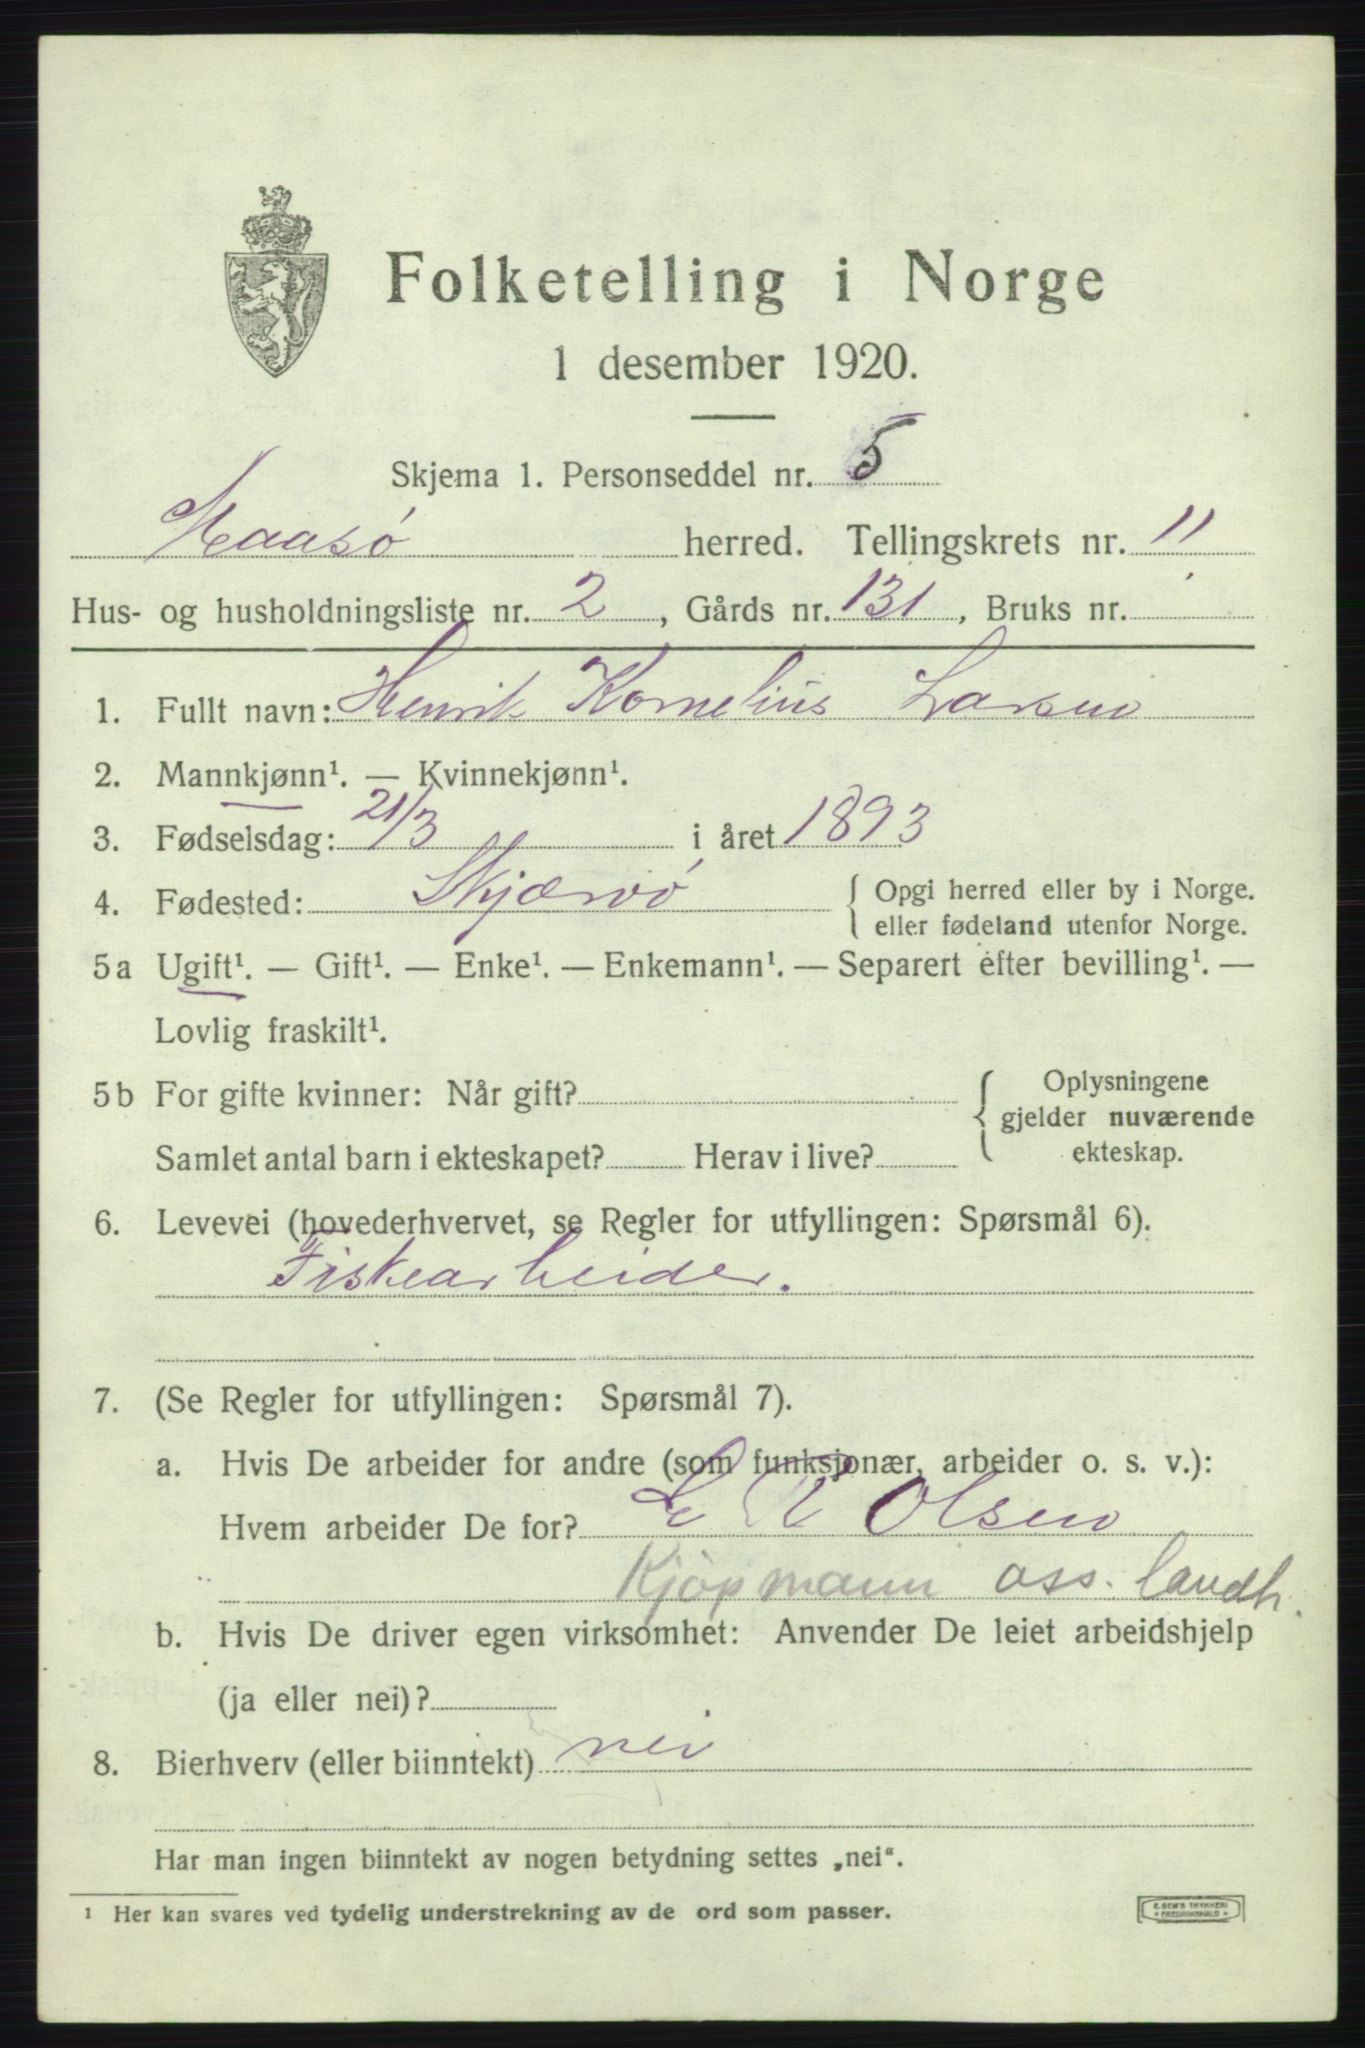 Folketelling i Norge
1 desember 1920.
Skjema 1. Personseddel nr. 5
Maasø herred. Tellingskrets nr. 11
Hus- og husholdningsliste nr. 2, Gårds nr. 131, Bruks nr.
1. Fullt navn: Henrik Kornelius Larsen
2. Mannkjønn¹. — Kvinnekjønn¹.
3. Fødselsdag: 21/3 i året 1893
4. Fødested: Skjærvö { Opgi herred eller by i Norge.
eller fødeland utenfor Norge.
5a Ugift¹. — Gift¹. — Enke¹. — Enkemann¹. — Separert efter bevilling¹. —
Lovlig fraskilt¹.
5b For gifte kvinner: Når gift? { Oplysningene
gjelder nuværende
Samlet antal barn i ekteskapet? Herav i live? ekteskap.
6. Levevei (hovederhvervet, se Regler for utfyllingen: Spørsmål 6).
Fiskearbeider.
7. (Se Regler for utfyllingen: Spørsmål 7).
a. Hvis De arbeider for andre (som funksjonær, arbeider o. s. v.):
Hvem arbeider De for? Olsen
Kjöpmann ass. landh.
b. Hvis De driver egen virksomhet: Anvender De leiet arbeidshjelp
(ja eller nei)?
8. Bierhverv (eller biinntekt) nei
Har man ingen biinntekt av nogen betydning settes „nei“.
¹ Her kan svares ved tydelig understrekning av de ord som passer.
E. SEM'S TRYKKERI
* FREDRIKSHALD *